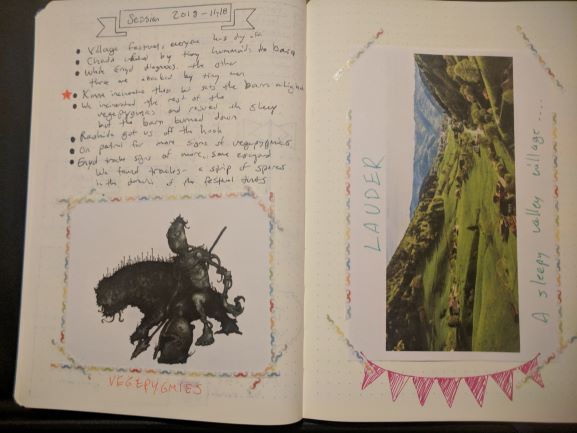 SESSION 2018-11-18
• Village festival, everyone has day off
• Chada by tiny humanoids to barn
• While Enyd diagnoses, the other
three are attacked by tiny men
• incinerates them but sets the barn alight
• We incinerated the rest of the
vegepygmies and the sheep
but the barn burned down
• got us off the hook
• On patrol for more signs of vegepygmies,
• Enyd tracks signs of more, some
We found tracks - a strip of spores
in the of the festival tents
VEGEPYGMIES
LAUDER
A sleepy valley village....